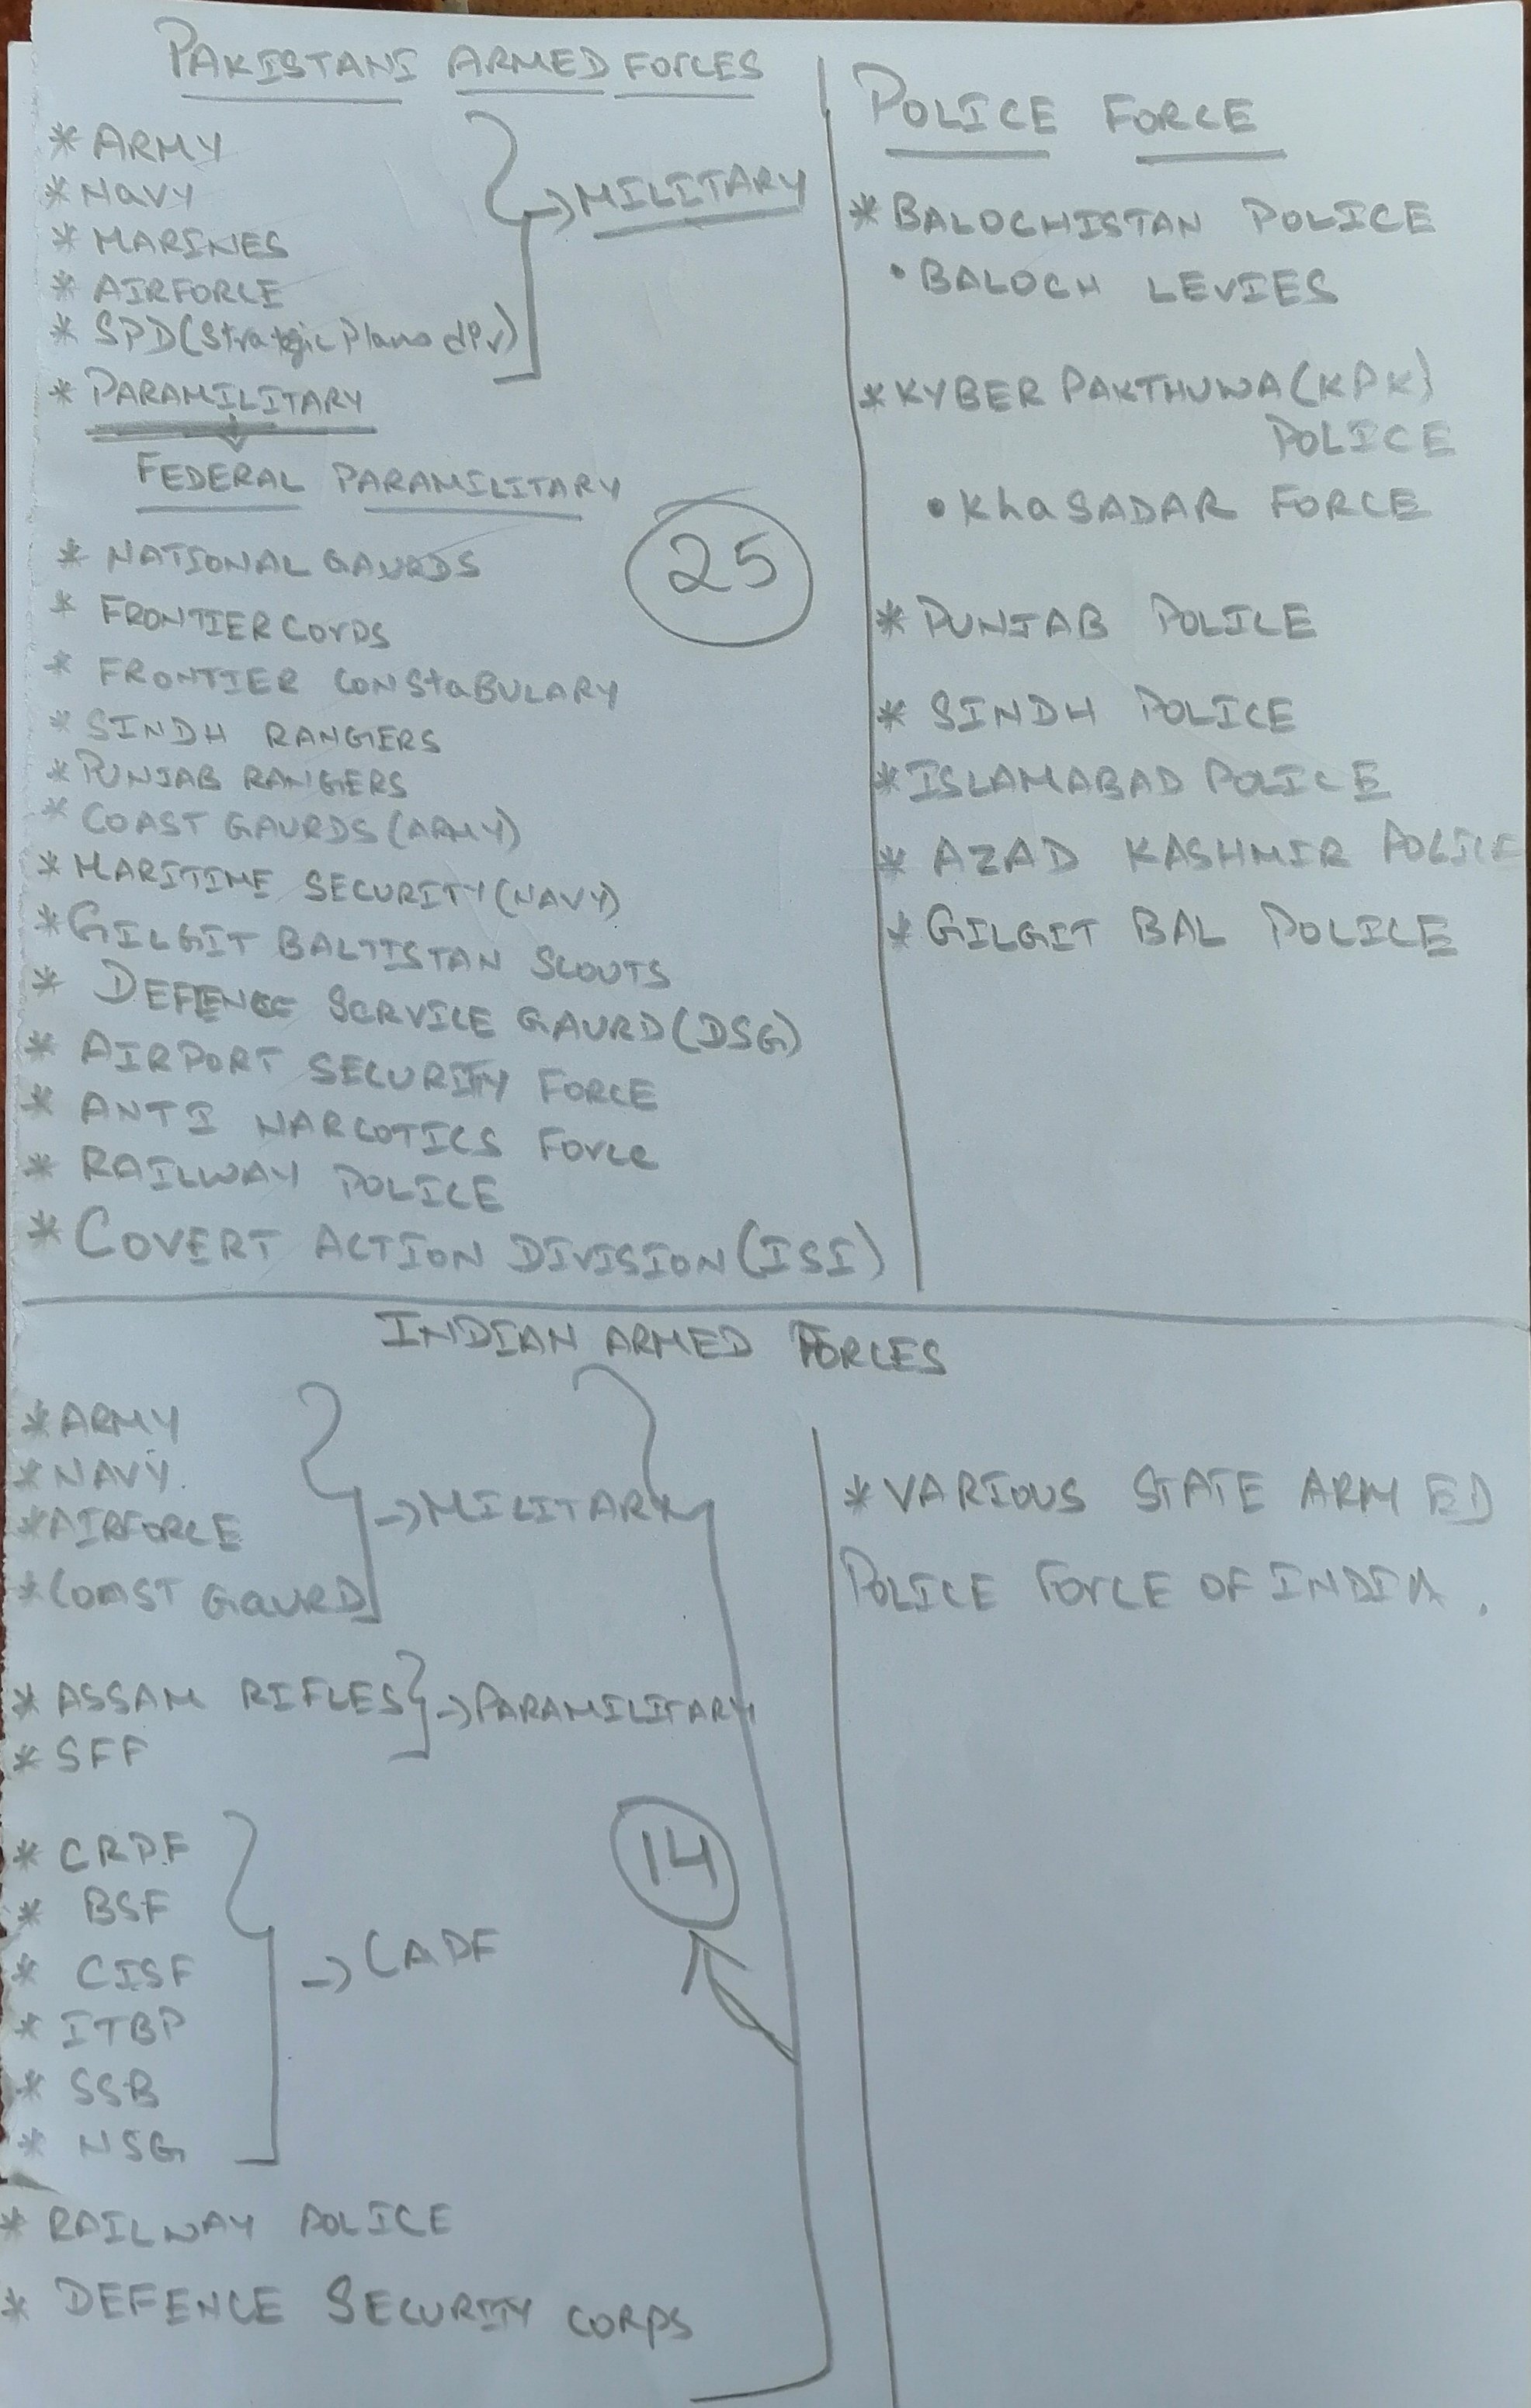 PAKISTANI ARMED FORCES
* ARMY
* NAVY
* MARINES
* AIRFORCE
* SPD (Strategic Plans div)
→ MILITARY
* PARAMILITARY
FEDERAL PARAMILITARY
25
* NATIONAL GAURDS
* FRONTIER CORPS
* FRONTIER CONSTABULARY
* SINDH RANGERS
* PUNJAB RANGERS
* COAST GAURDS (ARMY)
* MARITIME SECURITY (NAVY)
* GILGIT BALTISTAN SCOUTS
* DEFENCE SERVICE GAURD (DSG)
* AIRPORT SECURITY FORCE
* ANTI NARCOTICS FORCE
* RAILWAY POLICE
* COVERT ACTION DIVISION (ISI)
POLICE FORCE
* BALOCHISTAN POLICE
• BALOCH LEVIES
* KYBER PAKTHUWA (KPK)
POLICE
• KhaSADAR FORCE
* PUNJAB POLICE
* SINDH POLICE
* ISLAMABAD POLICE
* AZAD KASHMIR POLICE
* GILGIT BAL POLICE
INDIAN ARMED FORCES
* ARMY
* NAVY.
* AIRFORCE
* COAST GAURD
→ MILITARY
* ASSAM RIFLES
* SFF
→ PARAMILITARY
* CRPF
* BSF
* CISF
* ITBP
* SSB
* NSG
→ CAPF
14
* RAILWAY POLICE
* DEFENCE SECURITY CORPS
* VARIOUS STATE ARMED
POLICE FORCE OF INDIA.